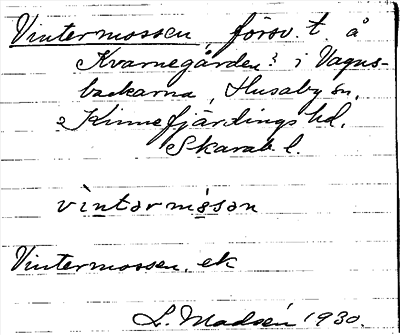 Vintermossen, försv. t. å
Kvarnegården? i Vagns-
backarna, Husaby sn,
Kinnefjärdings hd,
Skarab. l.
vìntərmósən
Vintermossen, ek
L. Madsén 1930.